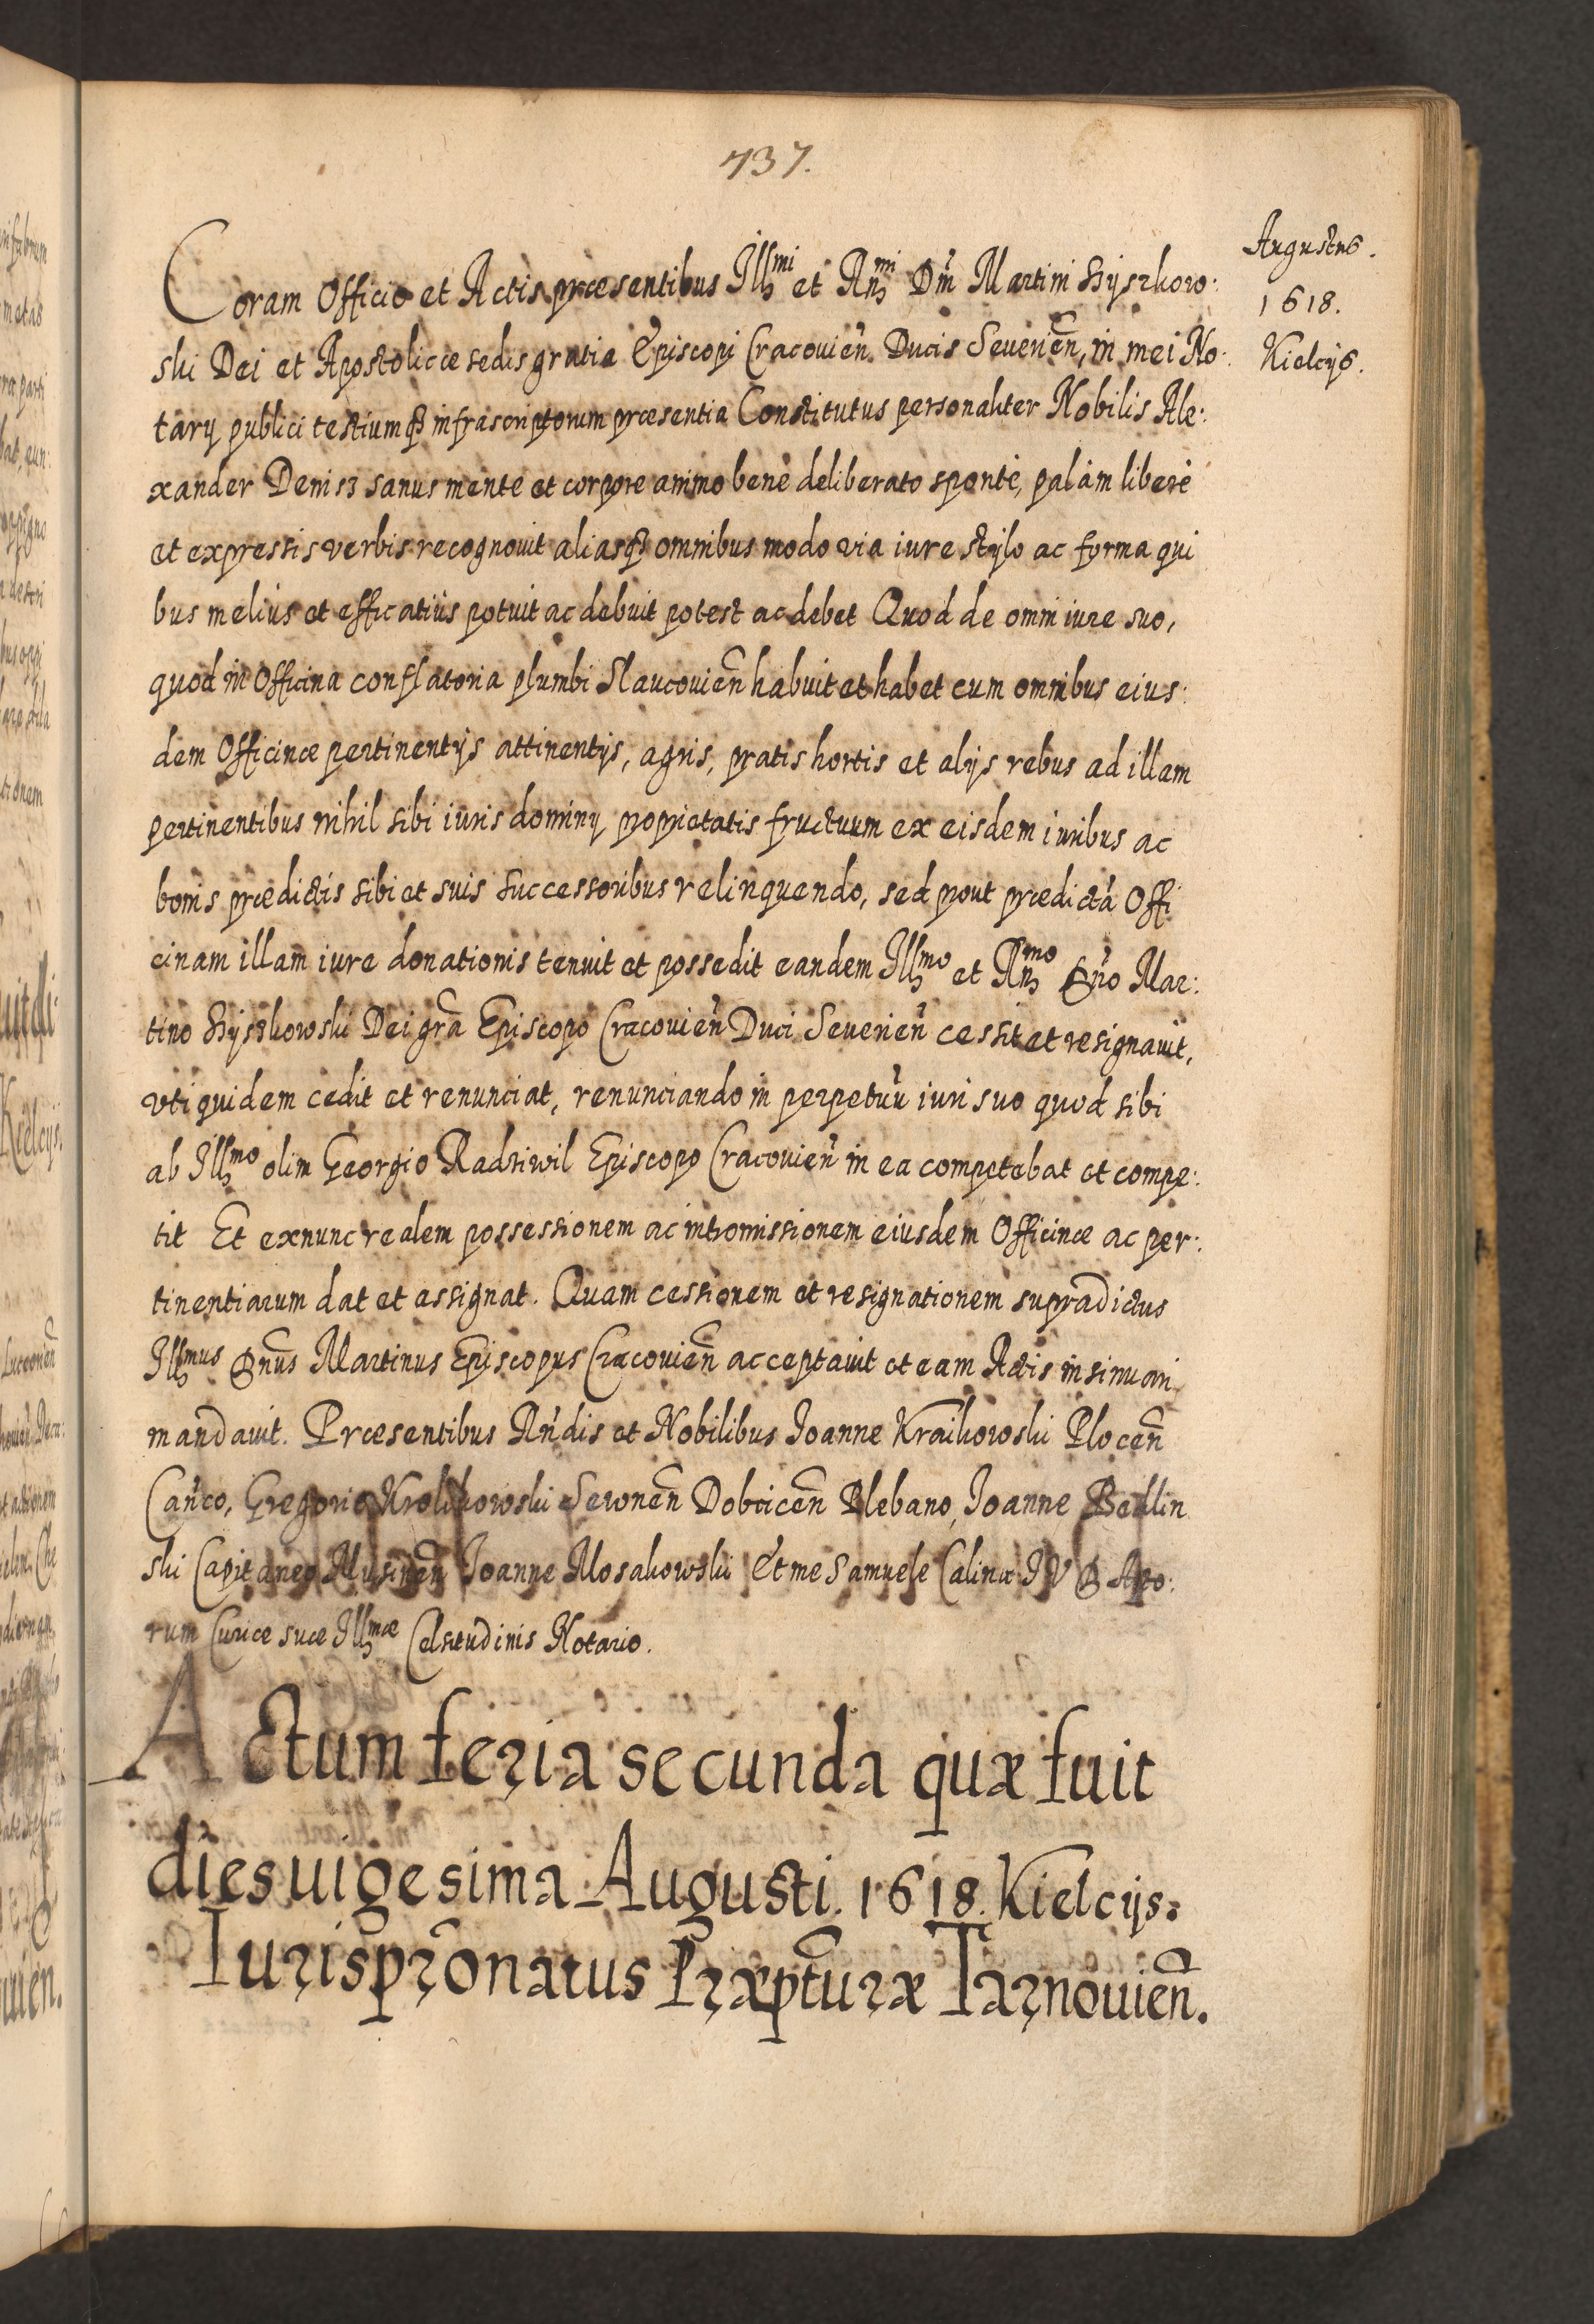 737.
Augustus.
1618.
Kielcijs.
Coram Officio et Actis præsentibus Illmi et Rnmi Dni Martini Szyszkow:
ski Dei et Apostolicæ sedis gratia Episcopi Cracouien̄. Ducis Seuerien̄, in mei No:
tarij publici testiumq3 infrascriptorum præsentia Constitutus personaliter Nobilis Ale:
xander Denis3 sanus mente et corpore animo bene deliberato sponte, palàm liberè
et expressis verbis recognouit aliasq3 omnibus modo via iure stylo ac forma qui
bus melius et efficatiùs potuit ac debuit potest ac debet Quod de omni iure suo,
quod in Officina conflatoria plumbi Slaucouien̄ habuit et habet cum omnibus eius:
dem Officinæ pertinentijs attinentijs, agris, pratis hortis et alijs rebus ad illam
pertinentibus nihil sibi iuris dominij proprietatis fructuum ex eisdem iuribus ac
bonis prædictis sibi et suis successoribus relinquendo, sed prout prædictā Offi
cinam illam iure donationis tenuit et possedit eandem Illmo et Rnmo Dn̄o Mar:
tino Szyszkowski Dei grā Episcopo Cracouien̄ Duci Seuerien̄ cessit et resignauit,
vti quidem cedit et renunciat, renunciando in perpetuū iuri suo quod sibi
ab Illmo olim Georgio Radziwil Episcopo Cracouien̄ in ea competebat et compe:
tit Et exnunc realem possessionem ac intromissionem eiusdem Officinæ ac per:
tinentiarum dat et assignat. Quam cessionem et resignationem supradictus
Illmus Dn̄us Martinus Episcopus Cracouien̄ acceptauit et eam Actis insinuari
mandauit. Præsentibus Rn̄dis et Nobilibus Ioanne Kraikowski Plocen̄
Can̄co, Gregorio Krolikowski Dobcicen̄ Plebano, Ioanne Bedlin
ski Capitaneo Musinen̄ Ioanne Mosakowski Et me Samuele Calina I V D Acto:
rum Curiæ suæ Illmæ Celsitudinis Notario.
Actum feria secunda quæ fuit
dies uigesima Augusti. 1618. Kielcijs.
Iurisprōnatus Præptūræ Tarnouien̄.